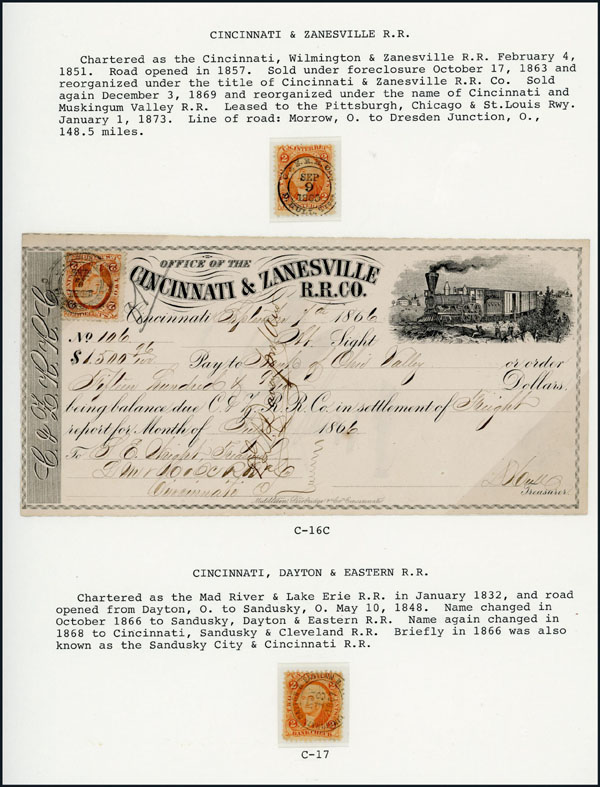 CINCINNATI & ZANESVILLE R.R.
Chartered as the Cincinnati, Wilmington & Zanesville R.R. February 4,
1851. Road opened in 1857. Sold under foreclosure October 17, 1863 and
reorganized under the title of Cincinnati & Zanesville R.R. Co. Sold
again December 3, 1869 and reorganized under the name of Cincinnati and
Muskingum Valley R.R. Leased to the Pittsburgh, Chicago & St.Louis Rwy.
January 1, 1873. Line of road: Morrow, O. to Dresden Junction, O.,
148.5 miles.
SEP
9
OFFICE OF THE
CINCINNATI & ZANESVILLE
R.R.CO.
Cincinnati September 7th 1866
No 106 At Sight
$1500 26/100 Pay to Bank of Ohio Valley or order
Fifteen hundred & Dollars,
being balance due C & Z R. R. Co. in settlement of Freight
report for Month of 1866
To Freight
Cincinnati O
Treasurer.
C & Z R. R. C
C-16C
CINCINNATI, DAYTON & EASTERN R.R.
Chartered as the Mad River & Lake Erie R.R. in January 1832, and road
opened from Dayton, O. to Sandusky, O. May 10, 1848. Name changed in
October 1866 to Sandusky, Dayton & Eastern R.R. Name again changed in
1868 to Cincinnati, Sandusky & Cleveland R.R. Briefly in 1866 was also
known as the Sandusky City & Cincinnati R.R.
C-17